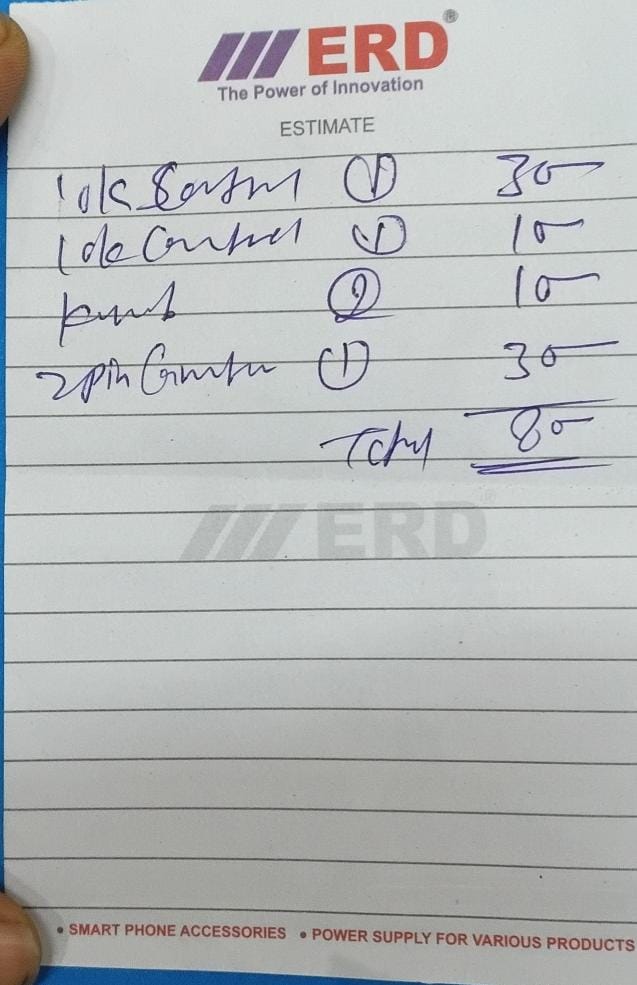 ERD®
The Power of Innovation
ESTIMATE
10k 1 30
10k Control 1 10
2 10
2 pin 1 30
Total 80
ERD
• SMART PHONE ACCESSORIES • POWER SUPPLY FOR VARIOUS PRODUCTS